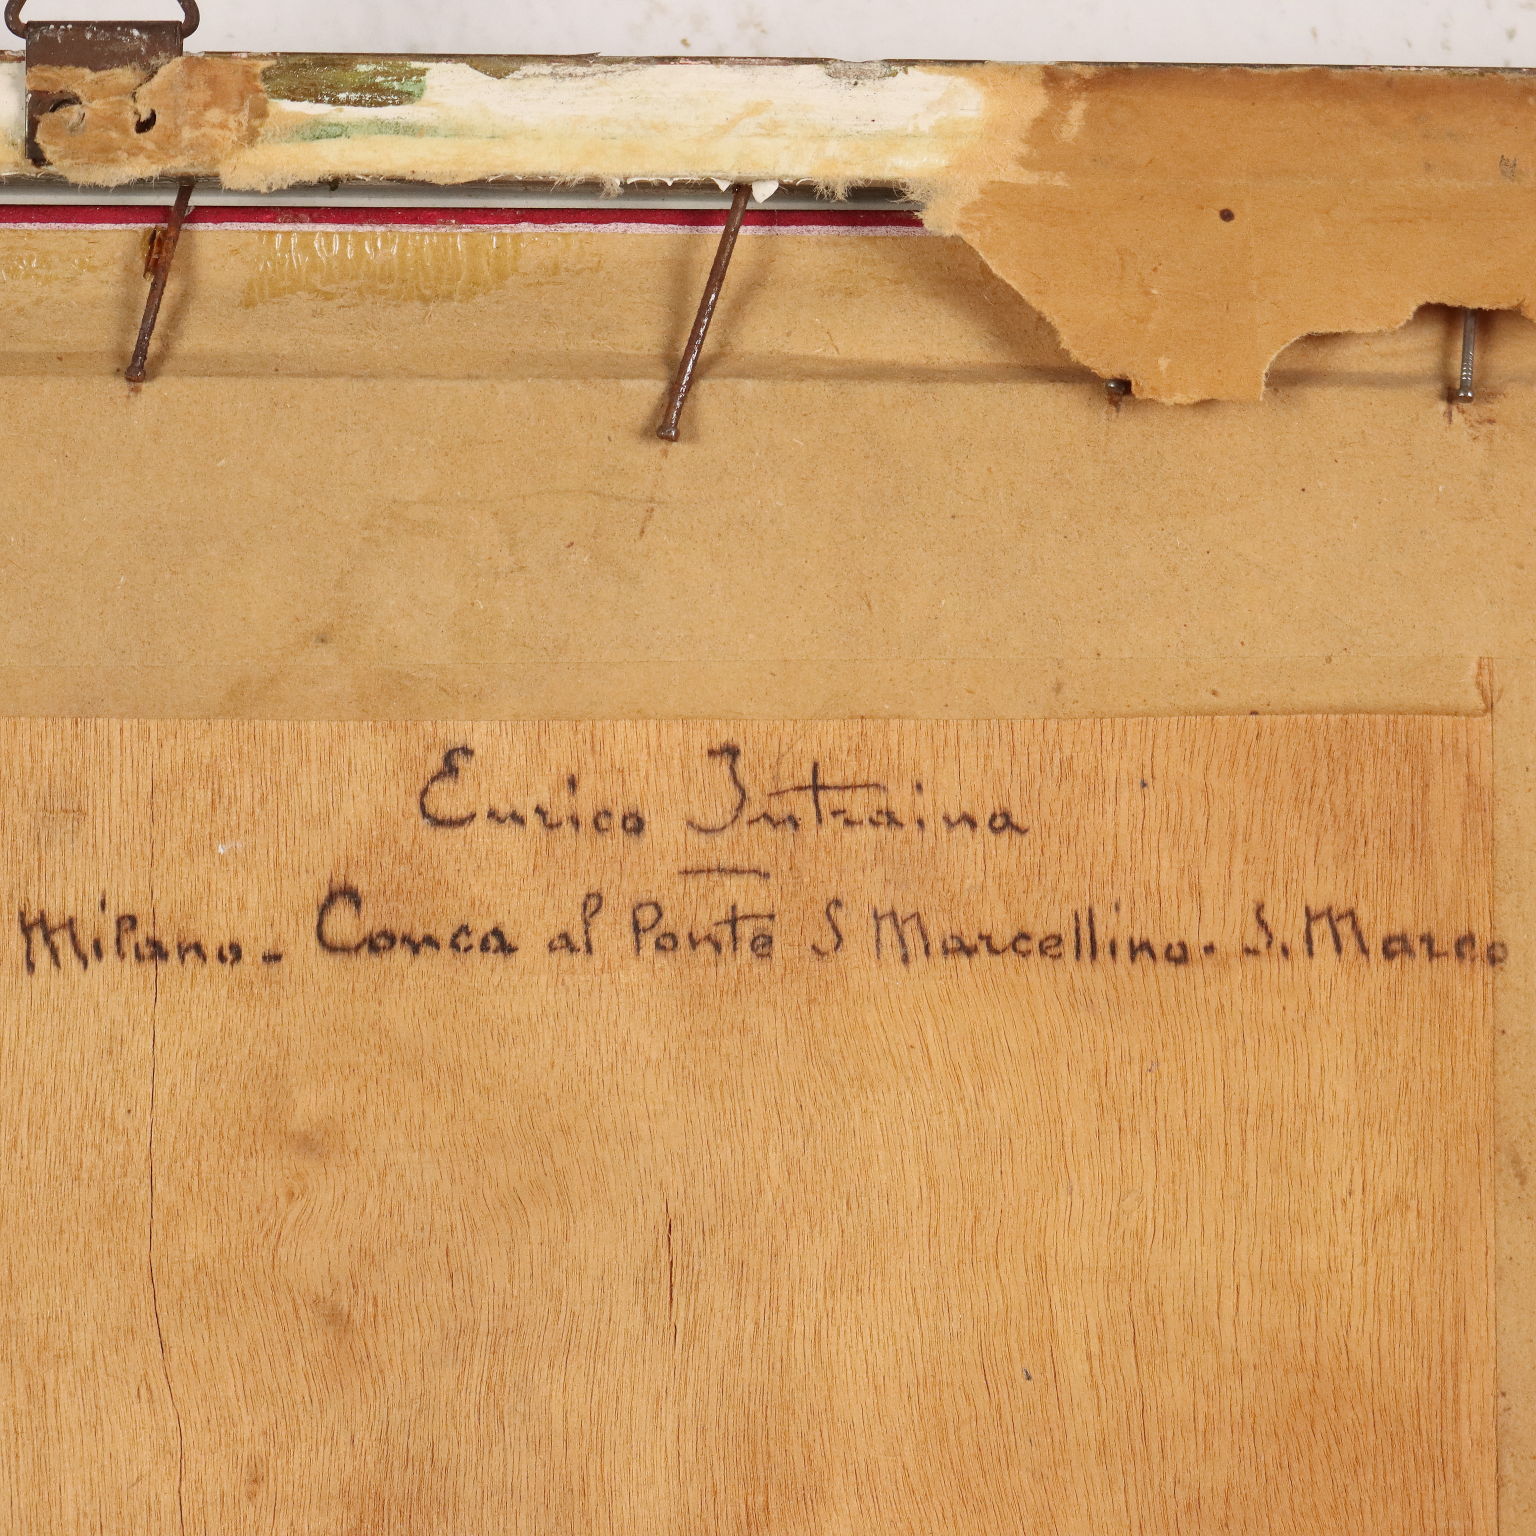 Enrico Intraina
Milano - Conca al Ponte S Marcellino. S. Marco